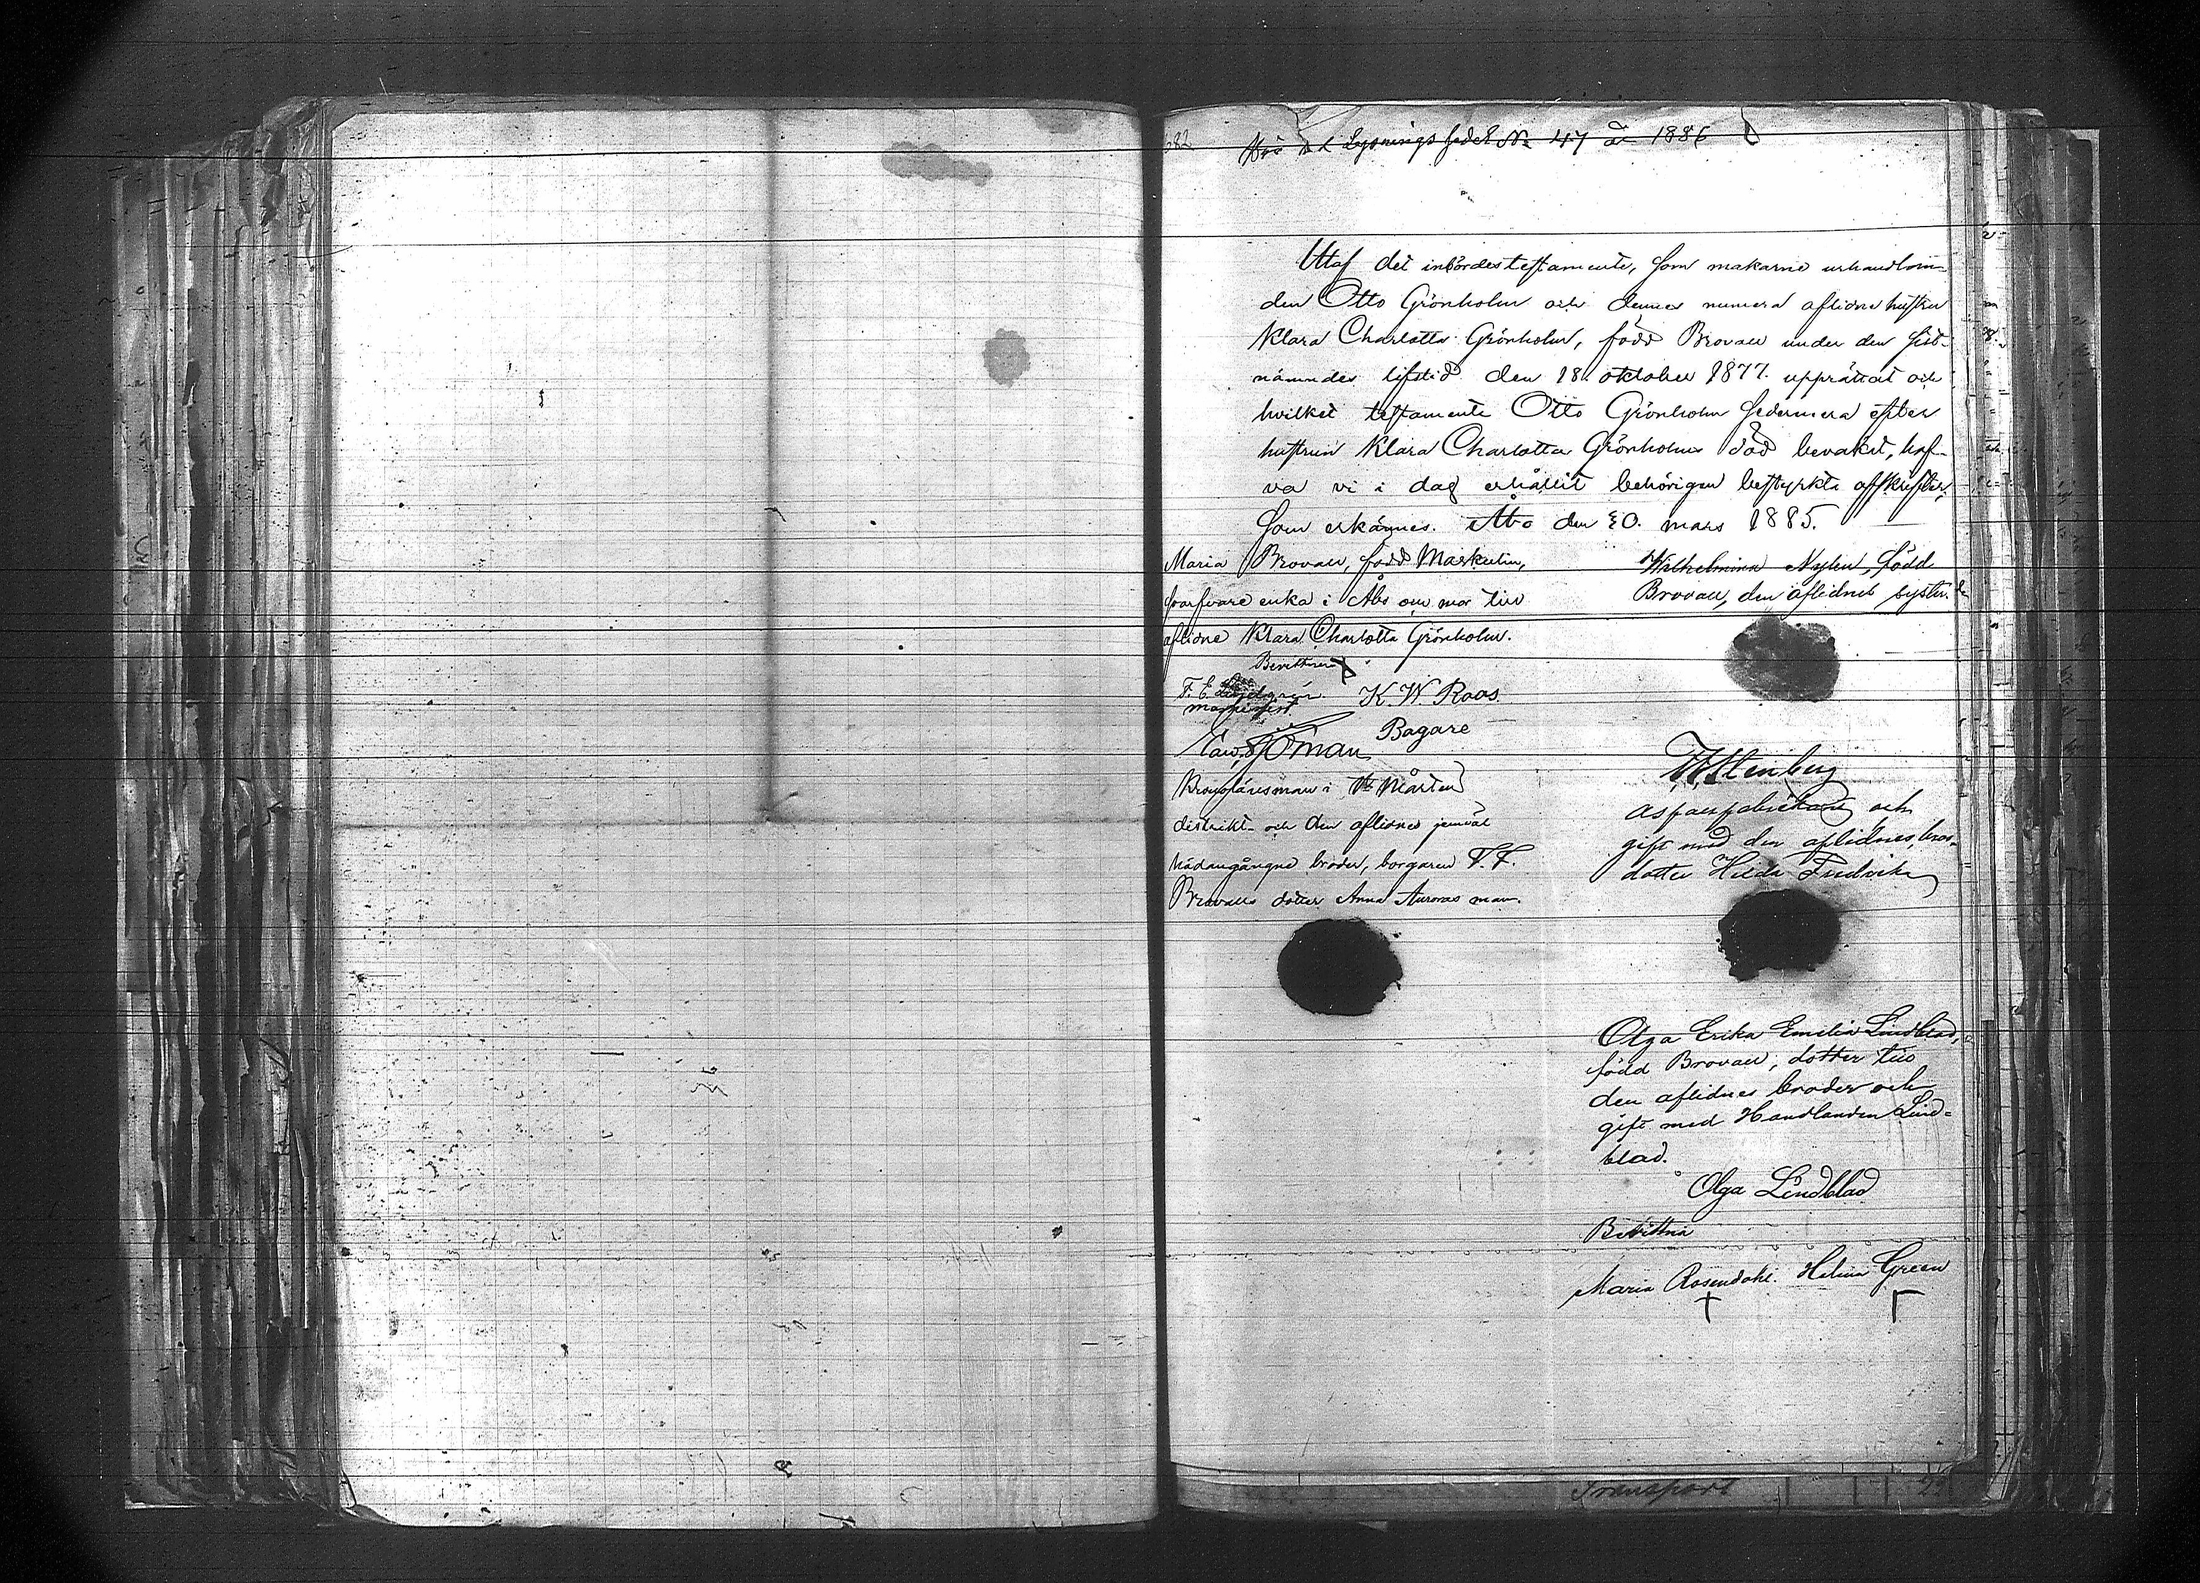 682
Lysningssedel No 47 år 1886
Utaf det inbördes testamente, som makarne urhandlan-
den Otto Grönholm och dennes numera aflidne hustru
Klara Charlotta Grönholm, född Brovall under den sist-
nämndes lifstid den 18. oktober 1877. upprättat och
hvilket testamente Otto Grönholm sedermera efter
hustrun Klara Charlotta Grönholms död bevakat, haf-
va vi i dag erhållit behörigen bestyrkta afskrifter,
som erkännes. Åbo den 20. mars 1885.
Maria Brovall, född Maskulin,
garfvare enka i Åbo och mor till
aflidne Klara Charlotta Grönholm.
Bevittna
F. E.
maskinist
K. W. Roos.
Bagare
Öman
Kronolänsman i St Mårtens
distrikt och den aflidnes jemväl
hädangångne broder, borgaren F. F.
Brovalls dotter Anna Auroras man.
Wilhelmina Nylen, född
Brovall, den aflidnes syster.
Stenberg
och
gift med den aflidnes bros-
dotter Hilda Fredrika
Olga Erika Emelia Lindblad,
född Brovall, dotter till
den aflidnes broder och
gift med Handlanden Lind=
blad.
Olga Lindblad
Bevittna
Maria Rosendahl. Helena Green
Transport